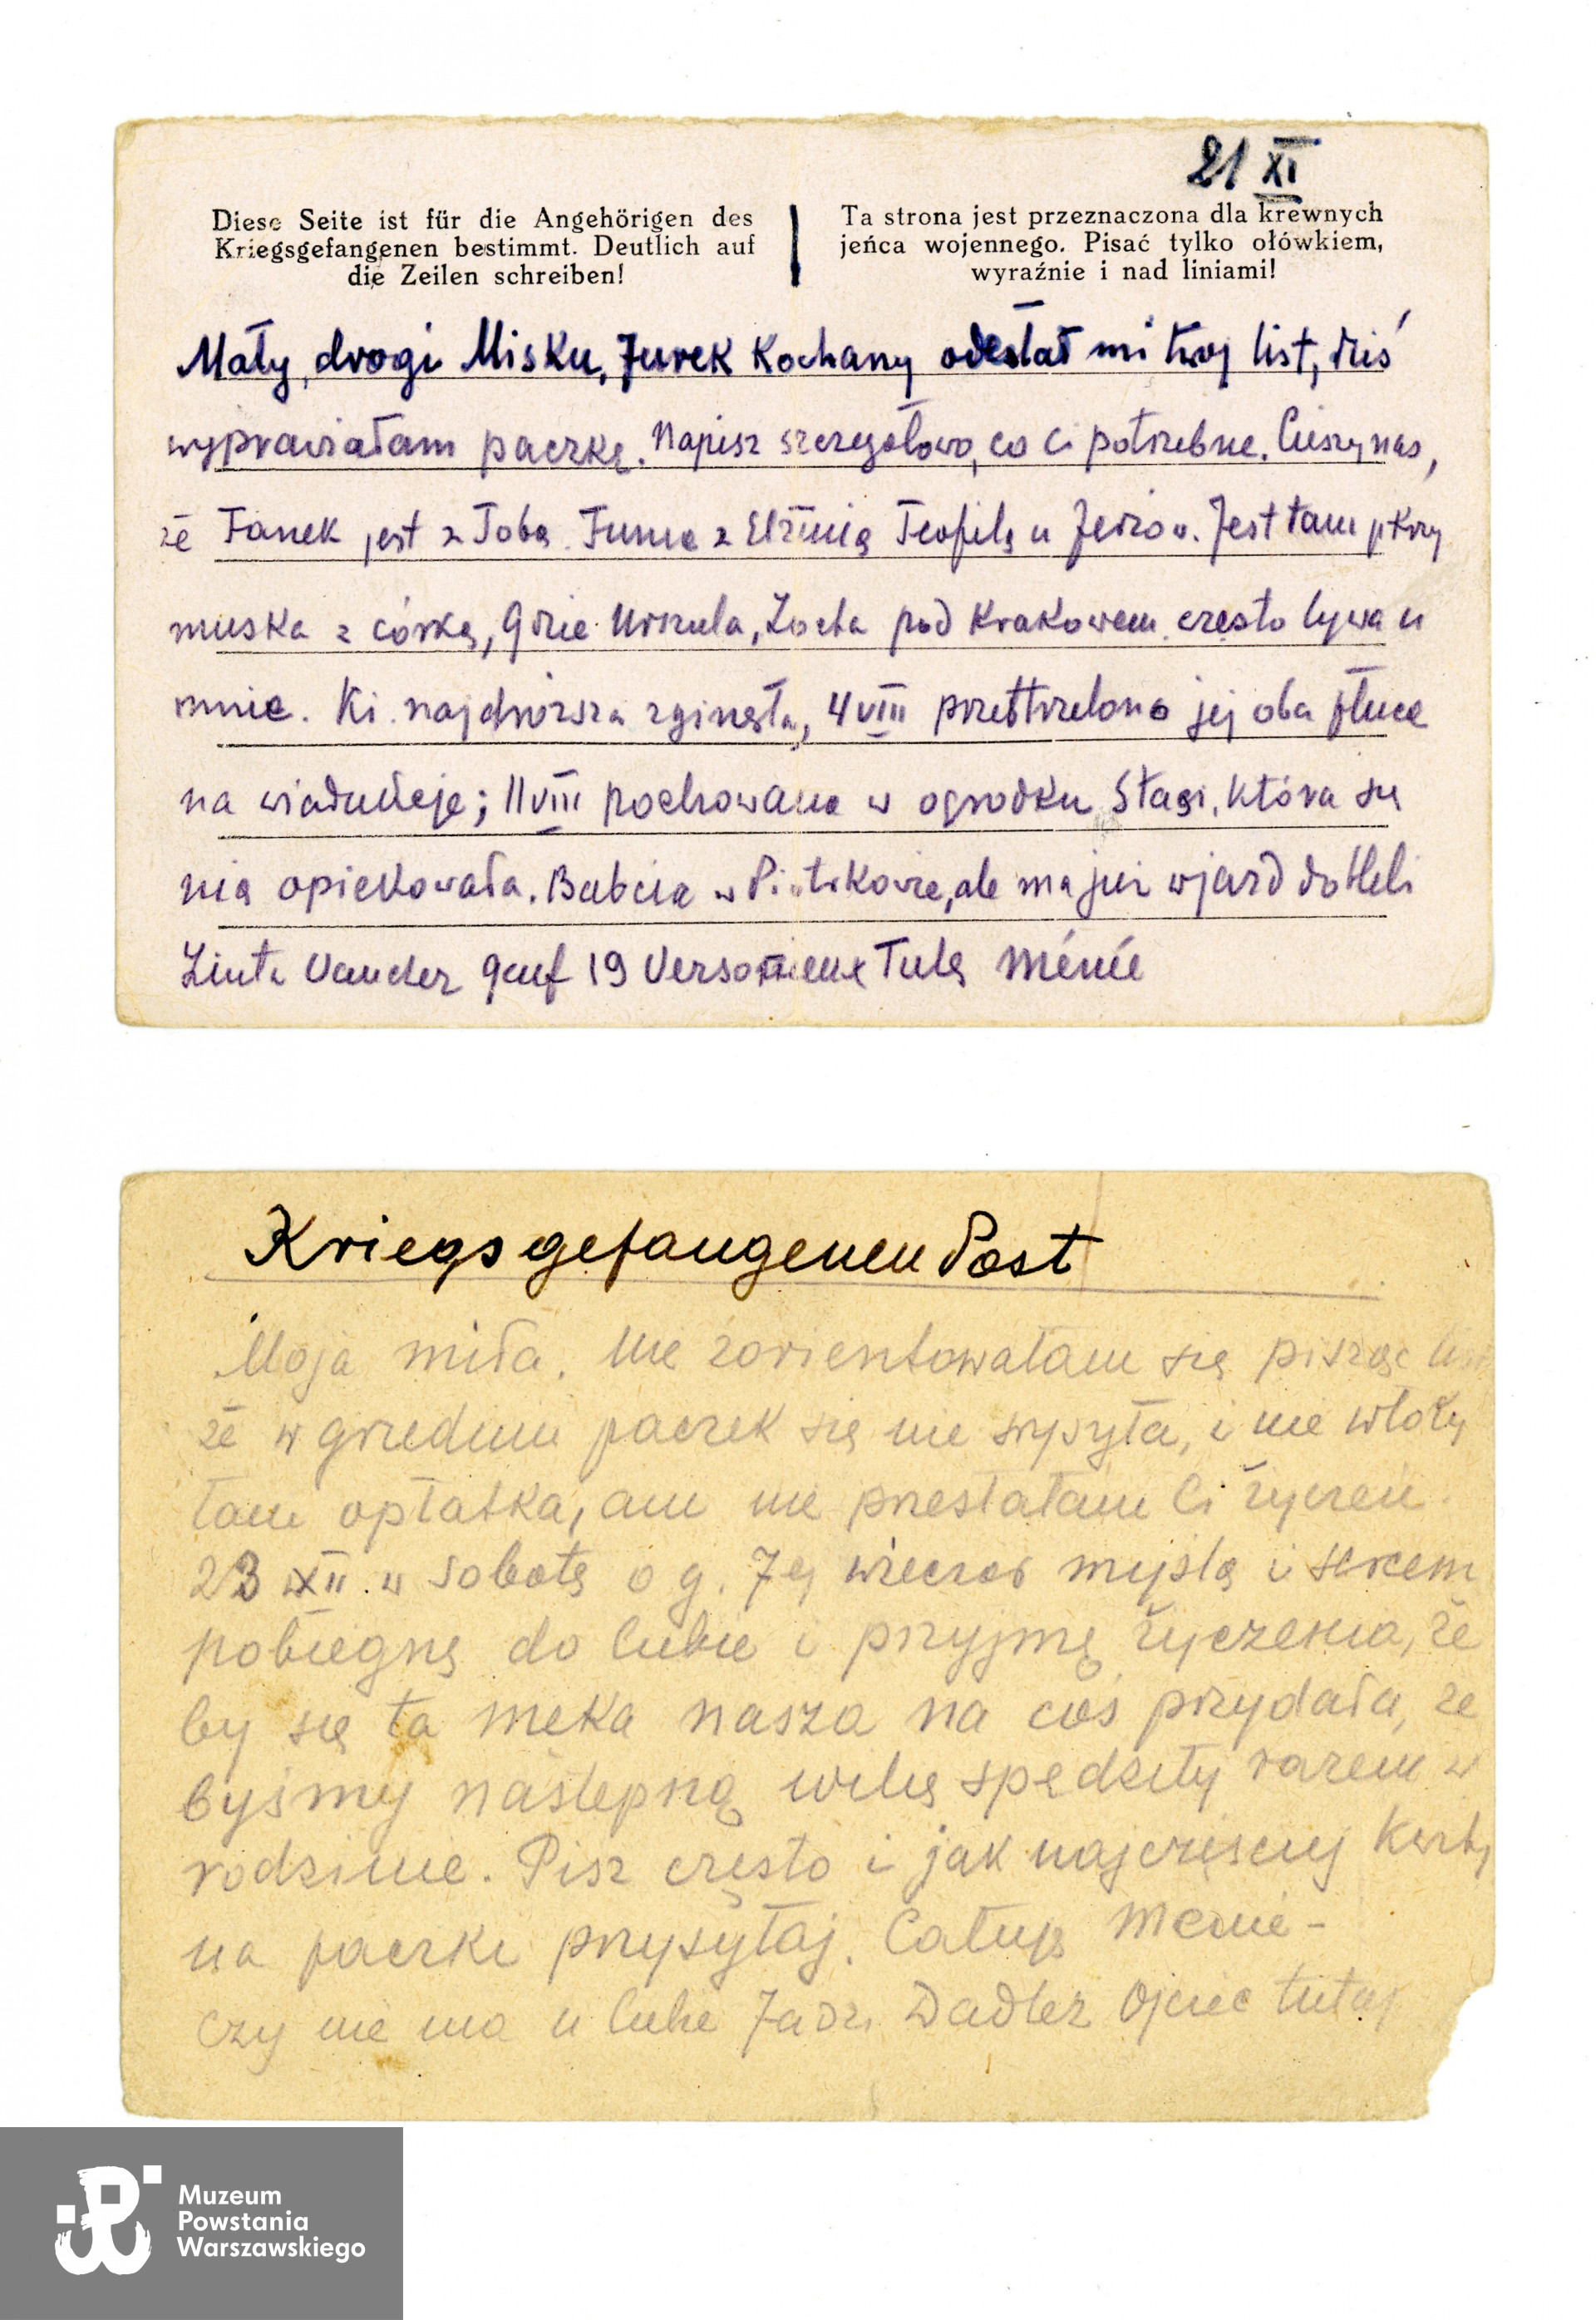 21 XI
Diese Seite ist für die Angehörigen des
Kriegsgefangenen bestimmt. Deutlich auf
die Zeilen schreiben!
Ta strona jest przeznaczona dla krewnych
jeńca wojennego. Pisać tylko ołówkiem,
wyraźnie i nad liniami!
Mały, drogi Misku, Jurek Kochany odesłał mi twoj list, dziś
wyprawiałam paczkę. Napisz szczegółowo, co Ci potrzebne. Cieszy nas,
że Janek jest z Tobą. z Teofilą u Jest tam
z córką, gdzie Urszula, Zocha pod Krakowem często bywa u
mnie. Ki najdroższa zginęła, 4 VIII przestrzelono jej oba płuca
na wiadukcie; 11 VIII pochowana w ogrodku Stasi, która się
nią opiekowała. Babcia w ale ma już wjazd do Heli
19 Tulę Ménié
Kriegsgefangenen Post
Moja miła. Nie zorientowałam się pisząc
że w grudniu paczek się nie wysyła, i nie włoży
łam opłatka, ani nie przesłałam Ci życzeń.
23 XII w sobotę o g. 7ej wieczor myślą i sercem
pobiegnę do Ciebie i przyjmę życzenia, że
by się ta męka nasza na coś przydała, że
byśmy następną wilię spędziły razem w
rodzinie. Pisz często i jak najczęściej karty
na paczki przysyłaj. Całuję Menié -
czy nie ma u Ciebie Jadz. Dadlez Ojciec tutaj
Muzeum
Powstania
Warszawskiego